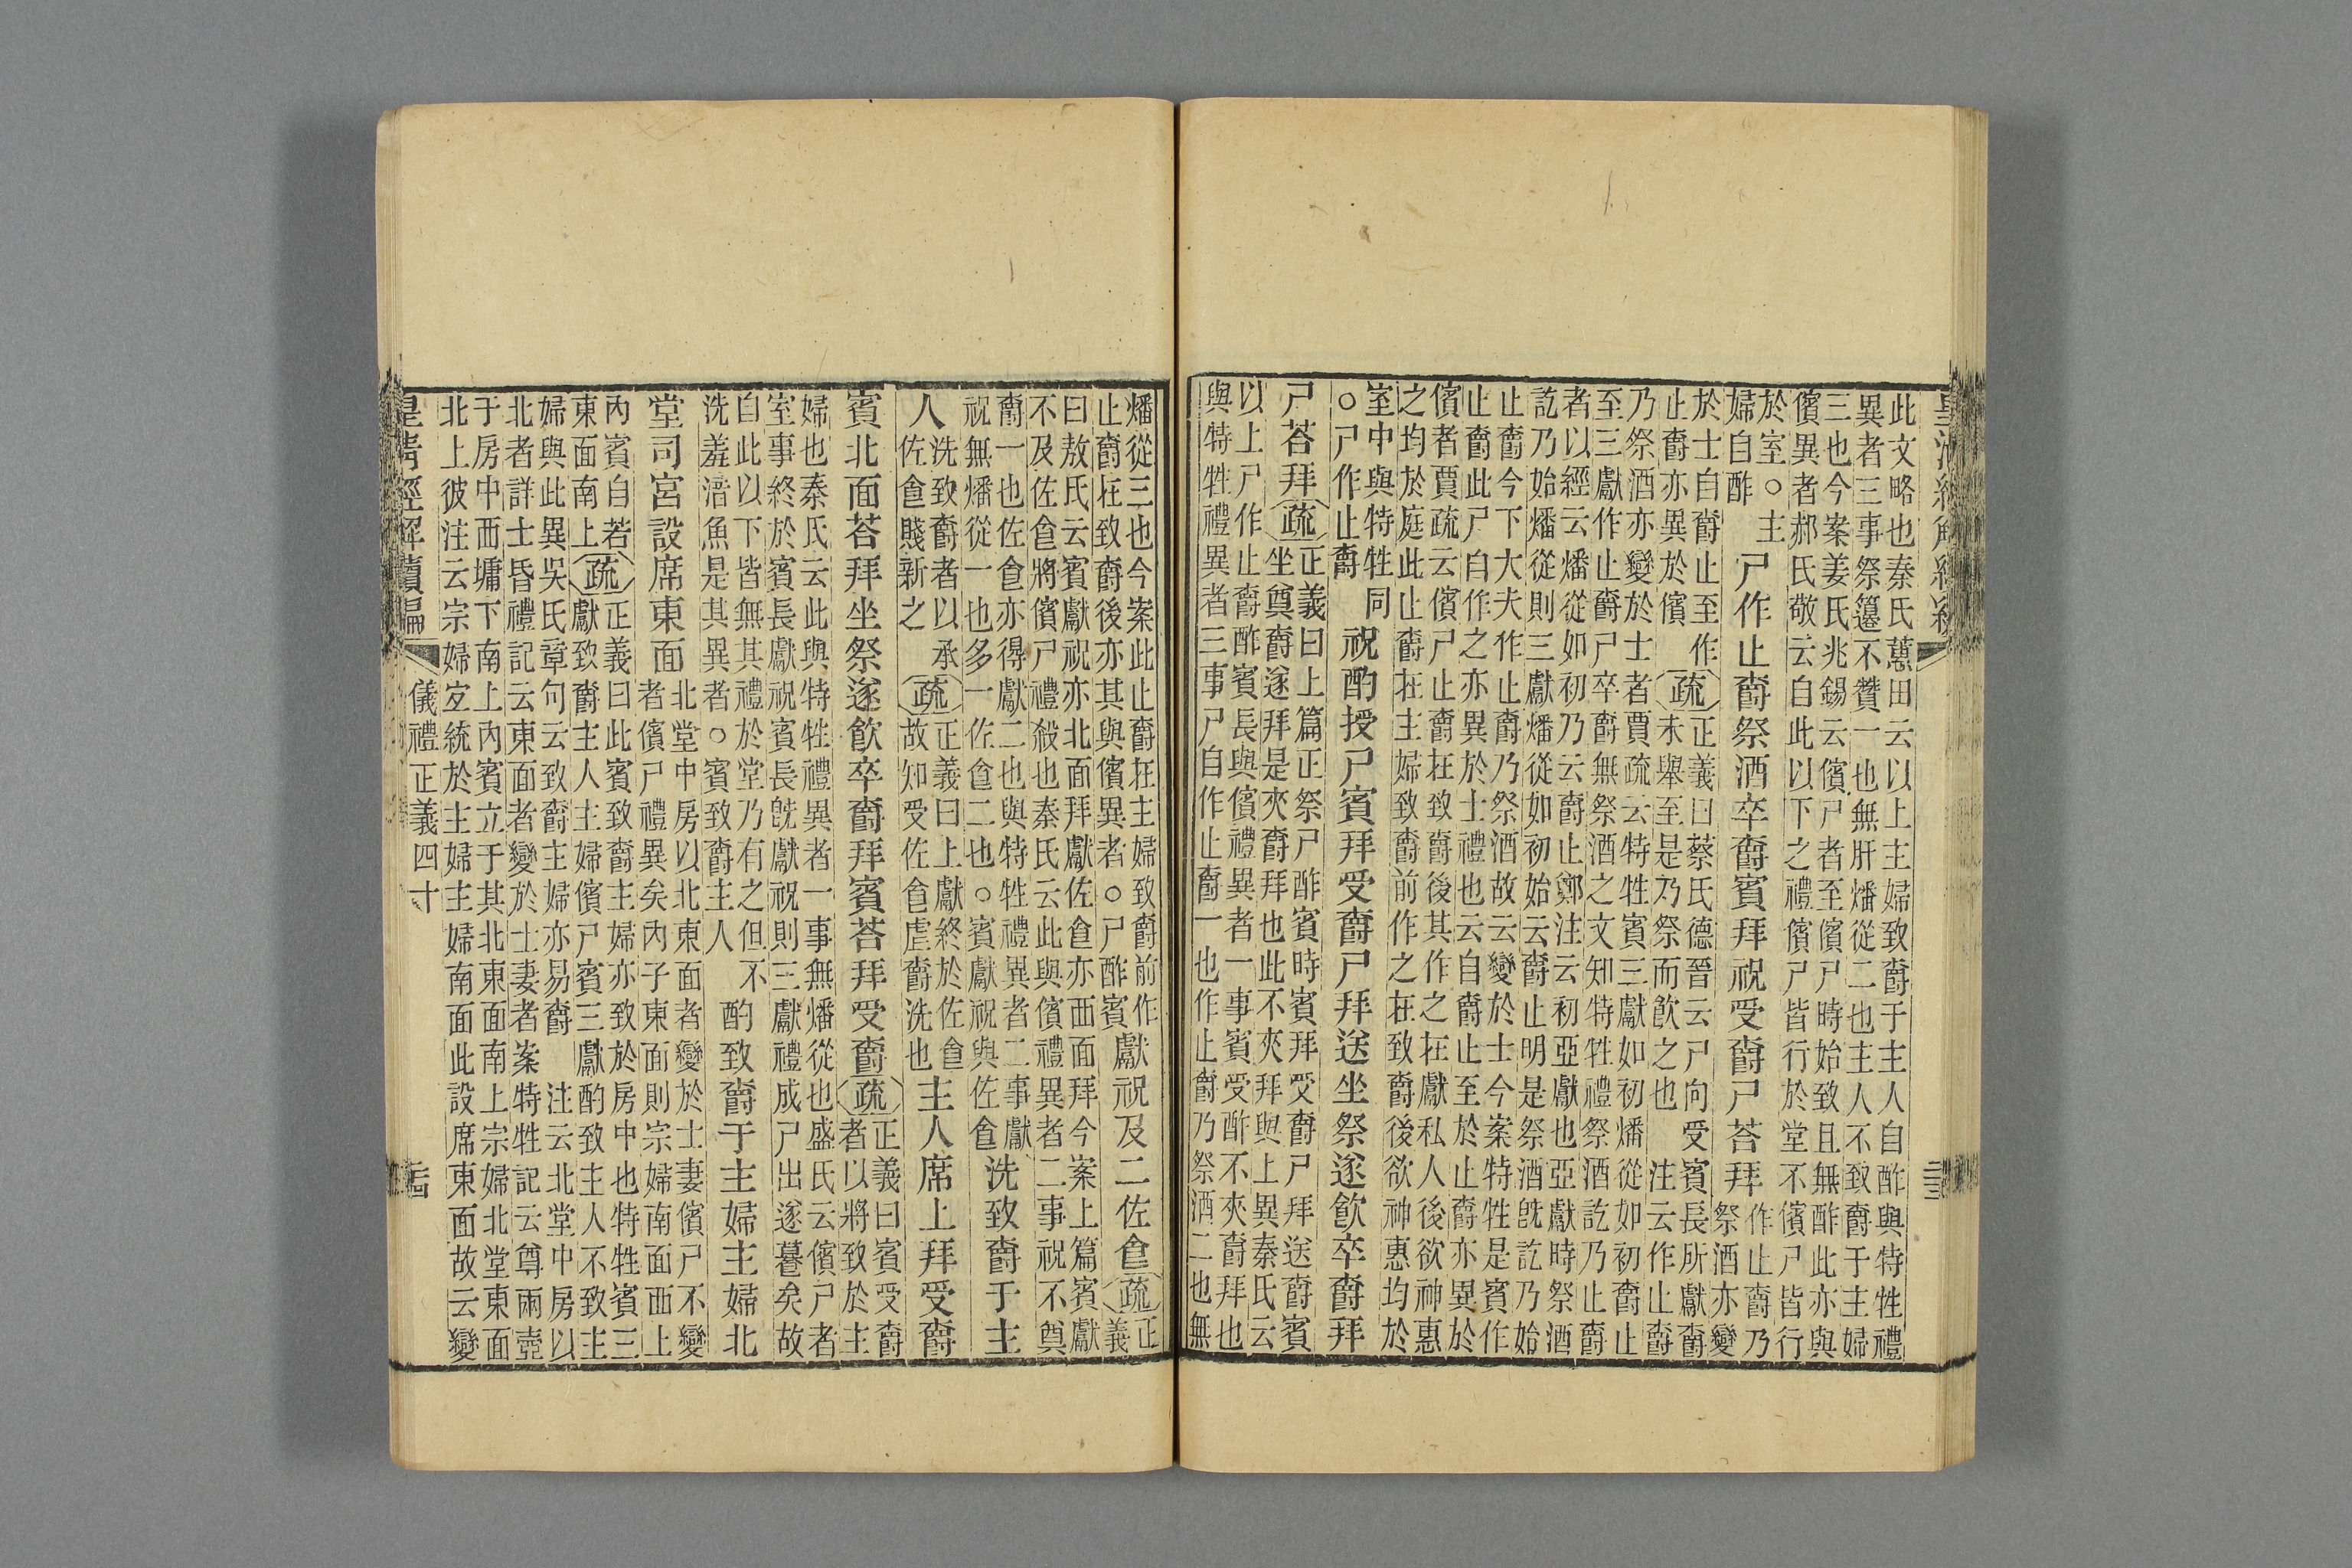 皇清經解續編
此文略也秦氏蕙田云以上主婦致爵于主人自酢與特牲禮
異者三事祭籩不贊一也無肝燔從二也主人不致爵于主婦
三也今案姜氏兆錫云儐尸者至儐尸時始致且無酢此亦與
儐異者郝氏敬云自此以下之禮儐尸皆行於堂不儐尸皆行
於室○主
婦自酢
尸作止爵祭酒卒爵賓拜祝受爵尸荅拜
作止爵乃
祭酒亦變
於士自爵止至作
止爵亦異於儐
疏
正義曰蔡氏德晉云尸向受賓長所獻爵
未舉至是乃祭而飮之也　注云作止爵
乃祭酒亦變於士者賈疏云特牲賓三獻如初燔從如初爵止
至三獻作止爵尸卒爵無祭酒之文知特牲禮祭酒訖乃止爵
者以經云燔從如初乃云爵止鄭注云初亞獻也亞獻時祭酒
訖乃始燔從則三獻燔從如初始云爵止明是祭酒旣訖乃始
止爵今下大夫作止爵乃祭酒故云變於士今案特牲是賓作
止爵此尸自作之亦異於士禮也云自爵止至於止爵亦異於
儐者賈疏云儐尸止爵在致爵後其作之在獻私人後欲神惠
之均於庭此止爵在主婦致爵前作之在致爵後欲神惠均於
室中與特牲同
○尸作止爵
祝酌授尸賓拜受爵尸拜送坐祭遂飮卒爵拜
尸荅拜
疏
正義曰上篇正祭尸酢賓時賓拜受爵尸拜送爵賓
坐奠爵遂拜是夾爵拜也此不夾拜與上異秦氏云
以上尸作止爵酢賓長與儐禮異者一事賓受酢不夾爵拜也
與特牲禮異者三事尸自作止爵一也作止爵乃祭酒二也無
燔從三也今案此止爵在主婦致爵前作
止爵在致爵後亦其與儐異者○尸酢賓
獻祝及二佐食
疏
正
義
曰敖氏云賓獻祝亦北面拜獻佐食亦西面拜今案上篇賓獻
不及佐食將儐尸禮殺也秦氏云此與儐禮異者二事祝不奠
爵一也佐食亦得獻二也與特牲禮異者二事獻
祝無燔從一也多一佐食二也○賓獻祝與佐食
洗致爵于主
人
洗致爵者以承
佐食賤新之
疏
正義曰上獻終於佐食
故知受佐食虛爵洗也
主人席上拜受爵
賓北面荅拜坐祭遂飮卒爵拜賓荅拜受爵
疏
正義曰賓受爵
者以將致於主
婦也秦氏云此與特牲禮異者一事無燔從也盛氏云儐尸者
室事終於賓長獻祝賓長旣獻祝則三獻禮成尸出遂暮矣故
自此以下皆無其禮於堂乃有之但不
洗羞湆魚是其異者○賓致爵主人
酌致爵于主婦主婦北
堂司宮設席東面
北堂中房以北東面者變於士妻儐尸不變
者儐尸禮異矣內子東面則宗婦南面西上
內賓自若
東面南上
疏
正義曰此賓致爵主婦亦致於房中也特牲賓三
獻致爵主人主婦儐尸賓三獻酌致主人不致主
婦與此異吳氏章句云致爵主婦亦易爵　注云北堂中房以
北者詳士昏禮記云東面者變於士妻者案特牲記云尊兩壺
于房中西墉下南上內賓立于其北東面南上宗婦北堂東面
北上彼注云宗婦宐統於主婦主婦南面此設席東面故云變
皇清經解續編　儀禮正義四十